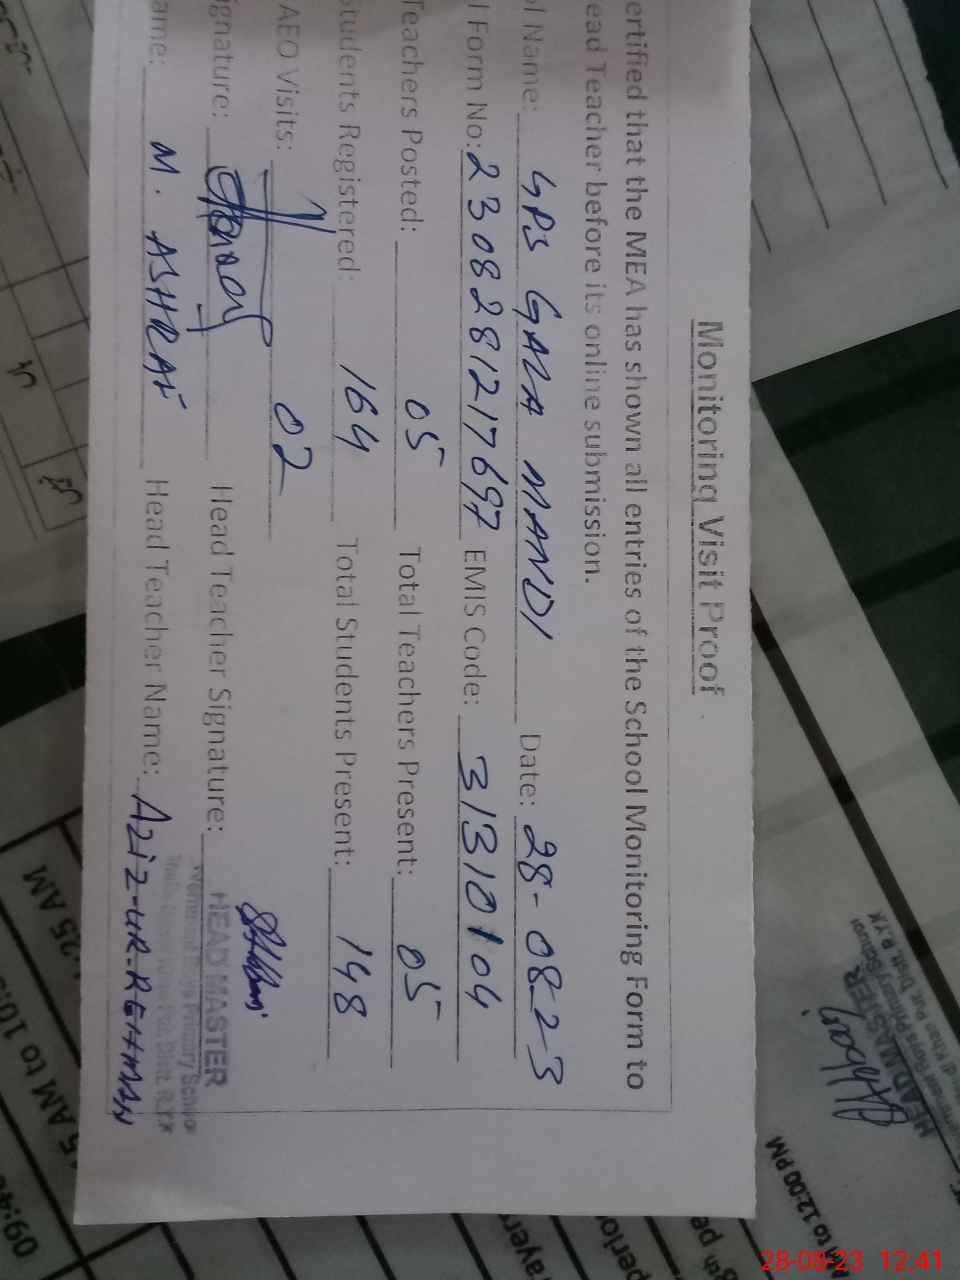 Monitoring Visit Proof
ertified that the MEA has shown all entries of the School Monitoring Form to
ead Teacher before its online submission.
ol Name: GPS GALA MANDI Date: 28-08-23
l Form No: 2308281217697 EMIS Code: 31310104
Teachers Posted: 05 Total Teachers Present: 05
tudents Registered: 164 Total Students Present: 148
AEO Visits: 02
ignature: Head Teacher Signature:
HEAD MASTER
ame: M. ASHRAF Head Teacher Name: AZIZ-UR-REHMAN
HEAD MASTER
1:25 AM
5 AM to 10:
09:4
AM to 12:00 PM
8th pe
perio
rayer
28-08-23 12:41